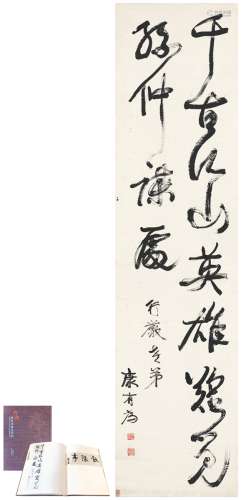 千古江山英雄難覓
孫仲謀處
行嚴老弟
康有為